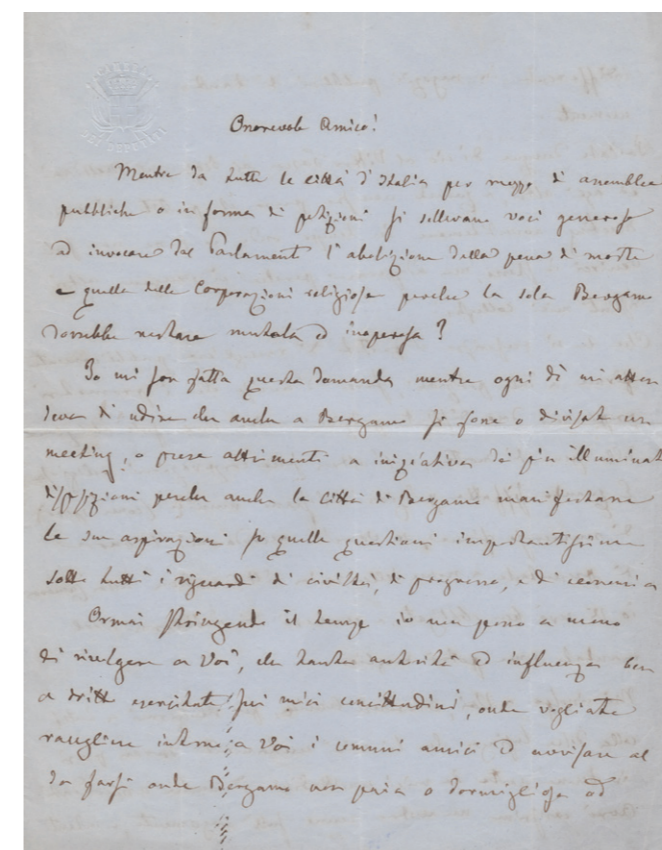 CAMERA
DEI DEPUTATI
Onorevole Amico!
Mentre da tutte le città d'Italia per mezzo di assemblee
pubbliche o in forma di petizioni si sollevano voci generose
ad invocare dal Parlamento l'abolizione della pena di morte
e quella delle Corporazioni religiose perché la sola Bergamo
dovrebbe restare mutola ed inoperosa?
Io mi son fatta questa domanda mentre ogni dì mi atten
deva di udire che anche a Bergamo si fosse o divisato un
meeting, o prese altrimenti a iniziativa dei più illuminati
disposizioni perché anche la Città di Bergamo manifestasse
le sue aspirazioni su quelle questioni importantissime
sotto tutti i riguardi di civiltà, di progresso, e di economia
Ormai stringendo il tempo io non posso a meno
di rivolgermi a Voi, che tanta autorità ed influenza ben
a dritto esercitate sui miei concittadini, onde vogliate
raccogliere intorno a Voi i comuni amici ed avvisare al
da farsi onde Bergamo non paia o dormigliosa od